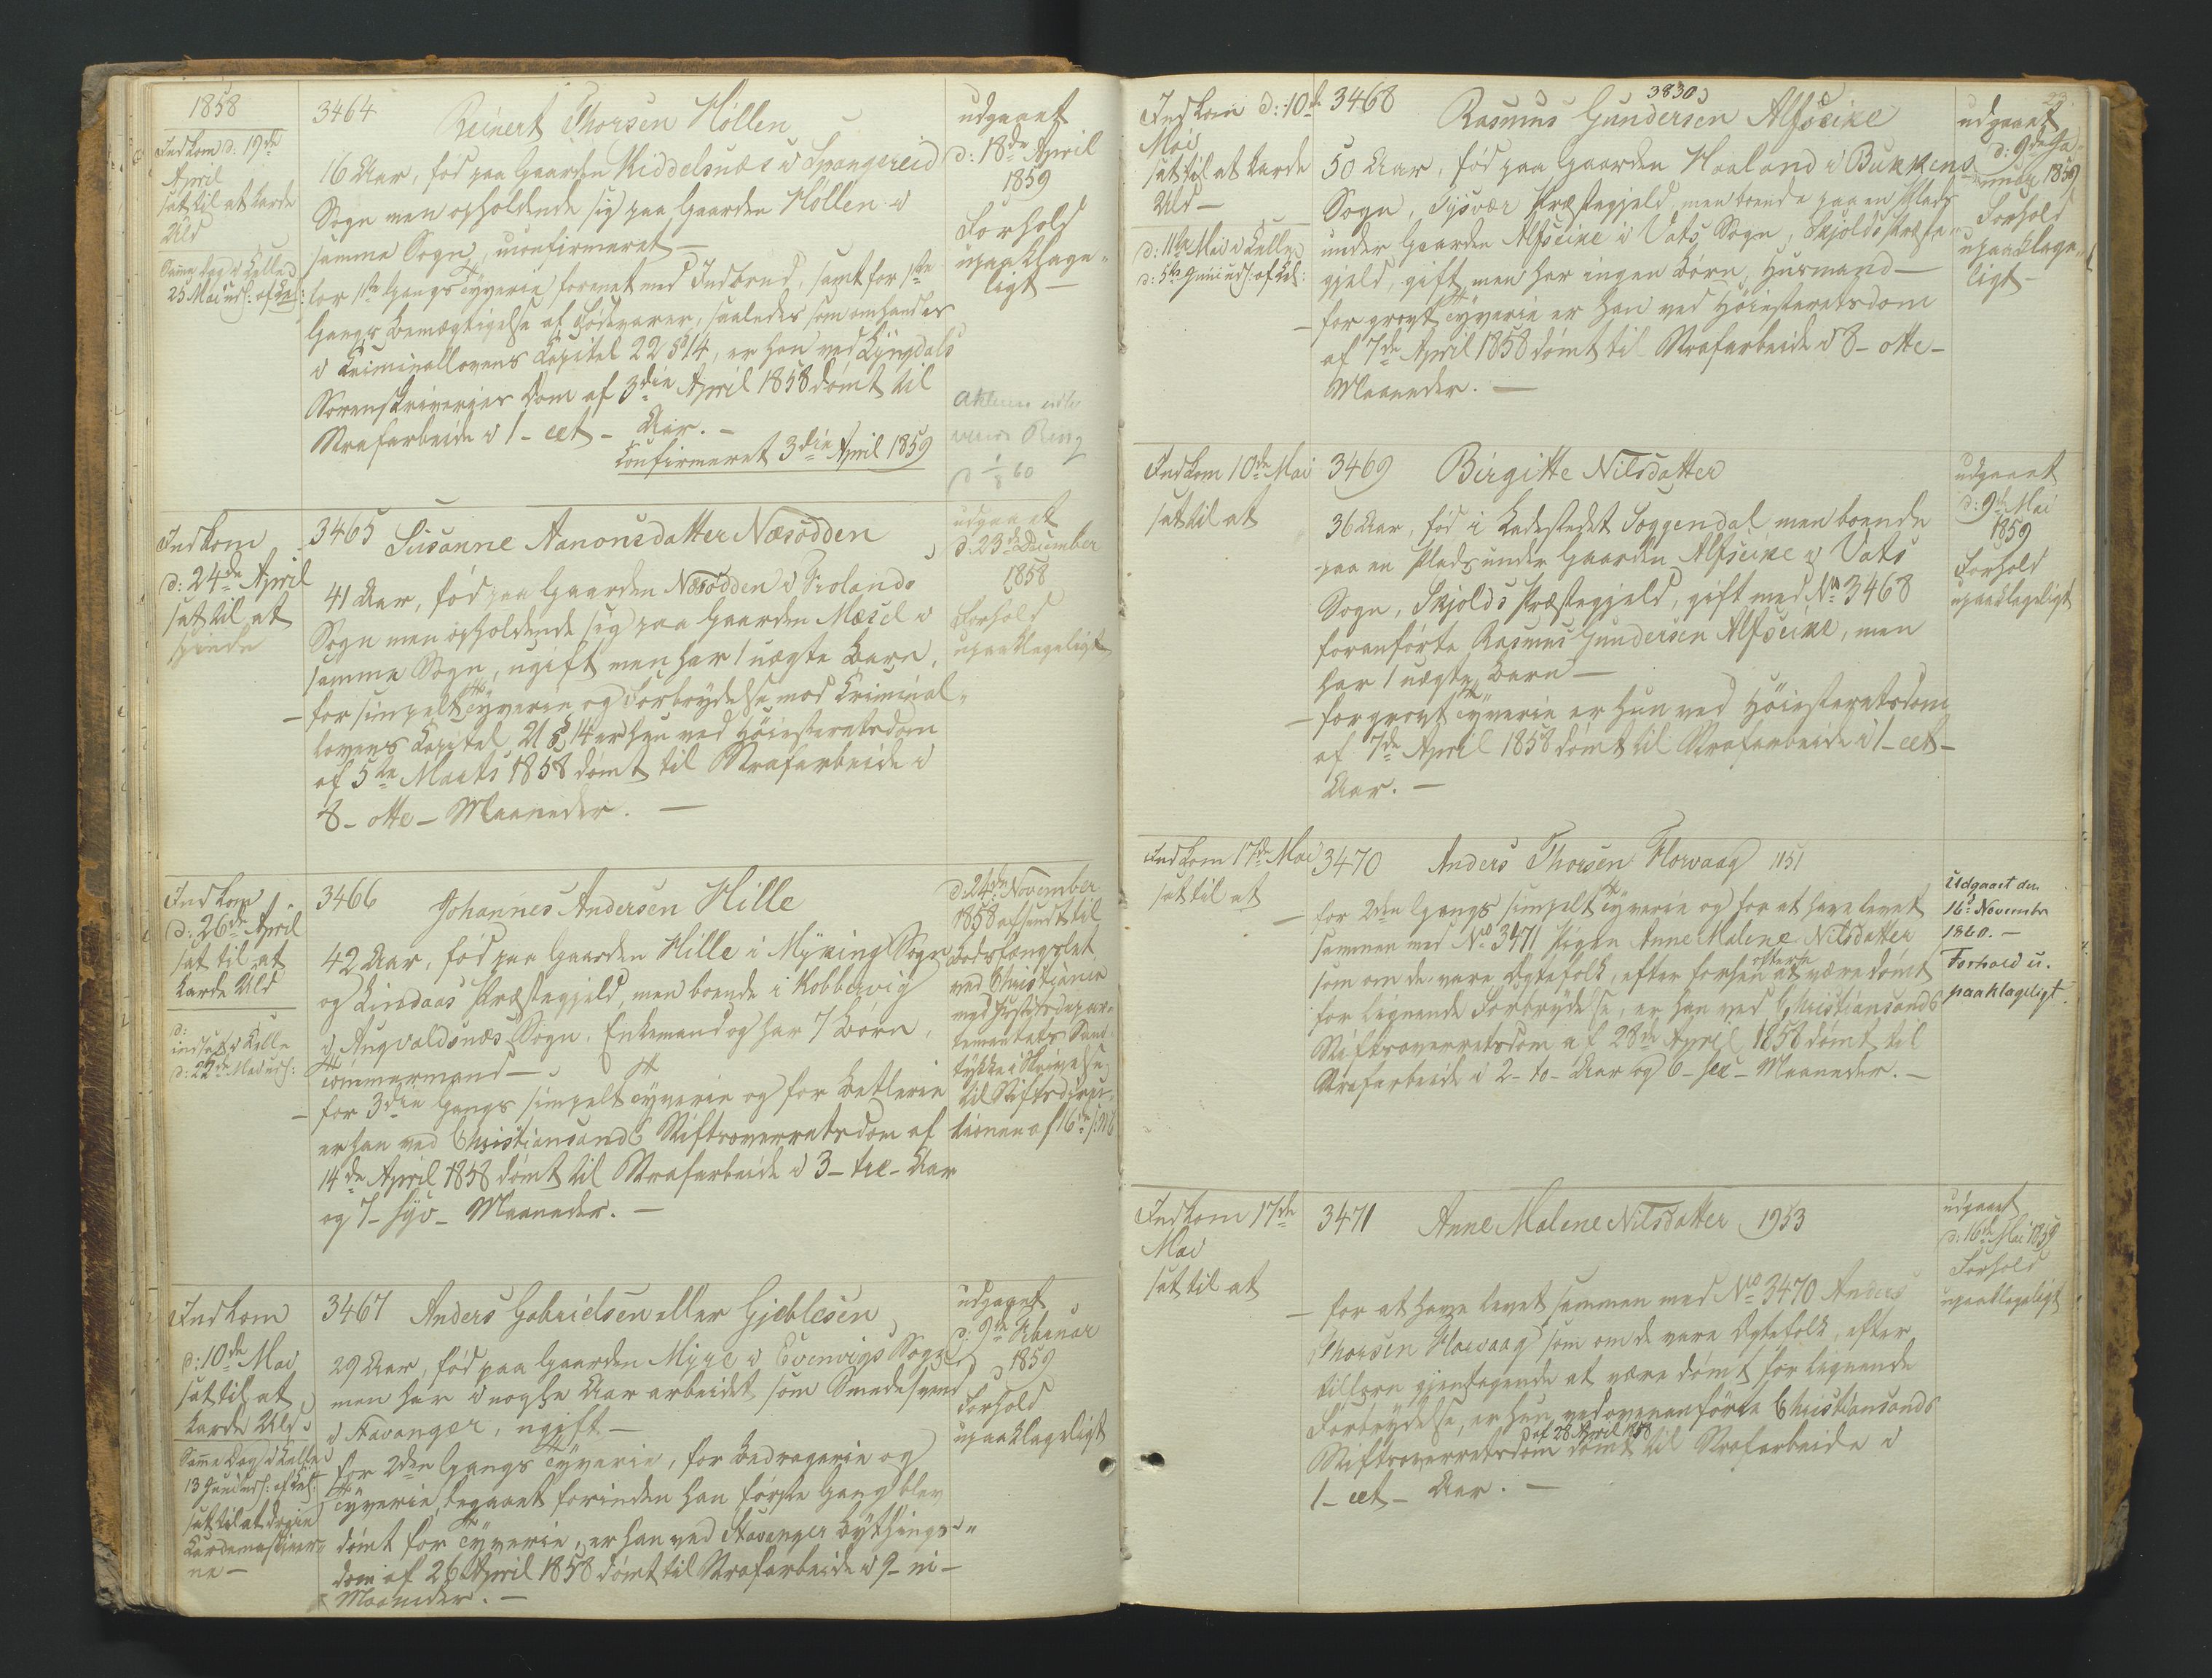 1858
Indkom d. 19de
April
sat til at karde
Uld
Samme Dag i Celle
25 Mai uds: af Cel:
3464
Reinert Thorsen Höllen
16 Aar, fød paa Gaarden Middelsnæs i Spangereid
Sogn men opholdende sig paa Gaarden Höllen i
samme Sogn, uconfirmeret —
for 1ste Gangs Tyverie forenet med Indbrud, samt for 1ste
Gangs Bemægtigelse af Födevarer, saaledes som omhandles
i Criminallovens Capitel 22 § 14, er han ved Lyngdals
Sorenskriveries Dom af 3die April 1858 dömt til
Strafarbeide i 1 - eet - Aar. —
Confirmeret 3die April 1859
udgaaet
d: 18de April
1859
Forhold
upaaklage-
ligt —
Indkom
d: 24de April
sat til at
spinde
3465 Susanne Aanonsdatter Næsodden
41 Aar, fød paa Gaarden Næsodden i Frolands
Sogn men opholdende sig paa Gaarden Mæsel i
samme Sogn, ugift men har 1 uægte Barn,
— for simpelt Tyverie og Forbrydelse mod Criminal-
lovens Capitel 21 § 14 er hun ved Höiesteretsdom
af 5te Marts 1858 dömt til Strafarbeide i
8 - otte - Maaneder. —
udgaaet
d: 23de December
1858
Forhold
upaaklageligt
Indkom
d: 26de April
sat til at
karde Uld
d:
indsat i Celle
d: 22de Mai uds:
3466
Johannes Andersen Hille
42 Aar, fød paa Gaarden Hille i Myking Sogn
og Lindaas Præstegjeld, men boende i Kobbervig
i Augvaldsnæs Sogn. Enkemand og har 7 Börn,
Tömmermand —
— for 3die Gangs simpelt Tyverie og for Betlerie
er han ved Christiansands Stiftsoverretsdom af
14de April 1858 dömt til Strafarbeide i 3 - tre - Aar
og 7 - syv - Maaneder. —
d: 24de November
1858 afsendt til
Bodsfængslet
ved Christiania
med Justitsdepar-
tementets Sam-
tykke i Skrivelse
til Stiftsdirec-
tionen af 16de s: M
Indkom
d: 10de Mai
sat til at
karde Uld
Samme Dag i Celle
13 Juni uds: af Cel:
sat til at dreie
Kardemaskiner-
ne —
3467 Anders Gabrielsen eller Gjeblesen
29 Aar, fød paa Gaarden Myre i Evenvigs Sogn
men har i nogle Aar arbeidet som Smedesvend
i Stavanger, ugift —
for 2den Gangs Tyverie, for Bedragerie og
Tyverie, begaaet forinden han første Gang blev
dömt for Tyverie, er han ved Stavanger Bythings-
dom af 26 April 1858 dömt til Strafarbeide i 9 - ni -
Maaneder. —
udgaaet
d: 9de Februar
1859
Forhold
upaaklageligt
23.
Indkom d: 10de
Mai
sat til at karde
Uld —
d: 11te Mai i Celle
d: 5te Juni uds: af Cel:
3468
3830
Rasmus Gundersen Alfseike
50 Aar, fød paa Gaarden Haaland i Bukkens
Sogn, Tysvær Præstegjeld, men boende paa en Plads
under Gaarden Alfseike i Vats Sogn, Skjolds Præste-
gjeld, gift men har ingen Börn, Husmand —
— for grovt Tyverie er han ved Höiesteretsdom
af 7de April 1858 dömt til Strafarbeide i 8 - otte -
Maaneder. —
udgaaet
d: 9de Ja-
nuar 1859
Forhold
upaaklage-
ligt —
Indkom 10de Mai
sat til at
3469 Birgitte Nilsdatter
36 Aar, fød i Ladestedet Soggendal men boende
paa en Plads under Gaarden Alfseike i Vats
Sogn, Skjolds Præstegjeld, gift med No 3468
foranførte Rasmus Gundersen Alfseike, men
har 1 uægte Barn —
— for grovt Tyverie er hun ved Höiesteretsdom
af 7de April 1858 dömt til Strafarbeide i 1 - eet -
Aar. —
udgaaet
d: 9de Mai
1859
Forhold
upaaklageligt
Indkom 17de Mai
sat til at
3470 Anders Thorsen Florvaag 1151
— for 2den Gangs simpelt Tyverie og for at have levet
sammen med No 3471 Pigen Anne Malene Nilsdatter
som om de vare Ægtefolk, efter forhen oftere at være dömt
for lignende Forbrydelse, er han ved Christiansands
Stiftsoverretsdom af 28de April 1858 dömt til
Strafarbeide i 2 - to - Aar og 6 - sex - Maaneder. —
Udgaaet den
16de November
1860. —
Forhold u-
paaklageligt.
Indkom 17de
Mai
sat til at
3471 Anne Malene Nilsdatter 1953
— for at have levet sammen med No 3470 Anders
Thorsen Florvaag som om de vare Ægtefolk, efter
tilforn gjentagende at være dömt for lignende
Forbrydelse, er hun ved ovenanförte Christiansands
Stiftsoverretsdom af 28 April 1858 dömt til Strafarbeide i
1 - eet - Aar. —
udgaaet
d: 16de Mai 1859
Forhold
upaaklageligt